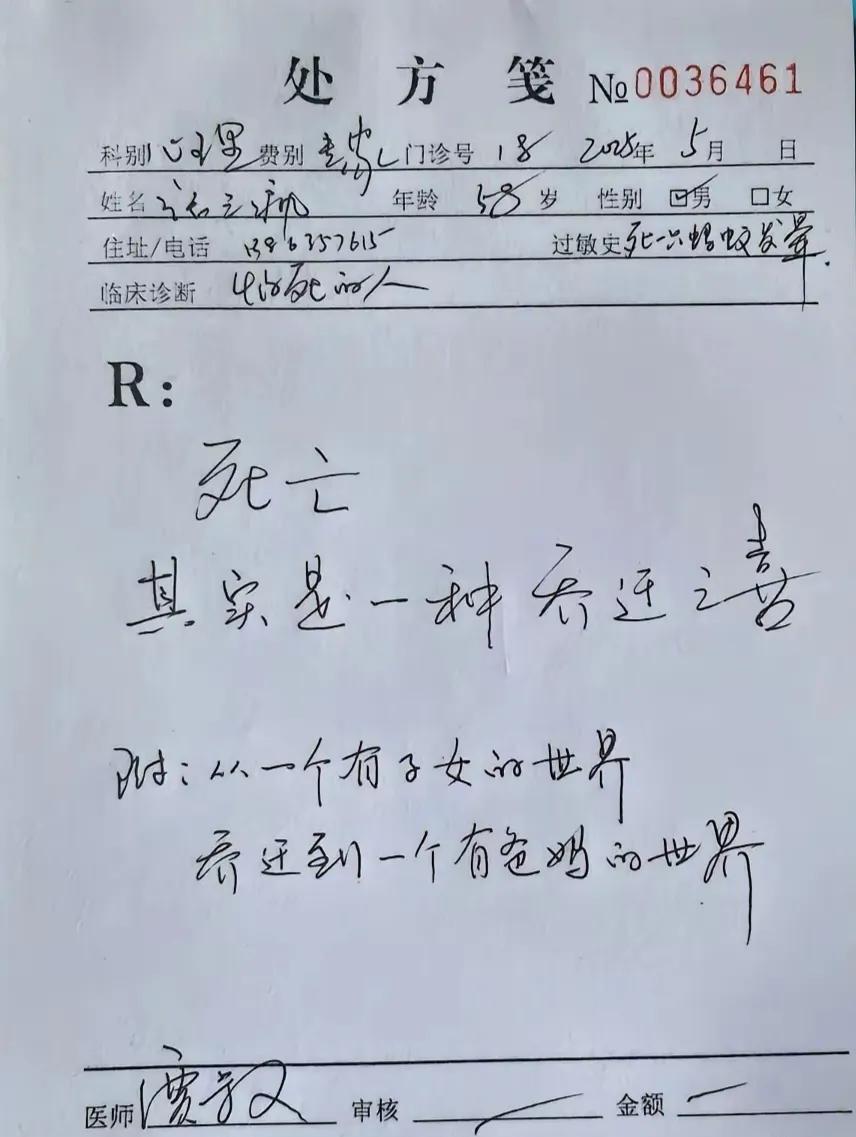 处方笺 №0036461
科别 心理 费别 门诊号 18 2025年 5月 日
姓名 年龄 58 岁 性别 ☑男 □女
住址/电话 过敏史 死一只蚂蚁发晕.
临床诊断 怕死的人
R:
死亡
其实是一种乔迁之喜
附:从一个有子女的世界
乔迁到一个有爸妈的世界
医师 审核 金额